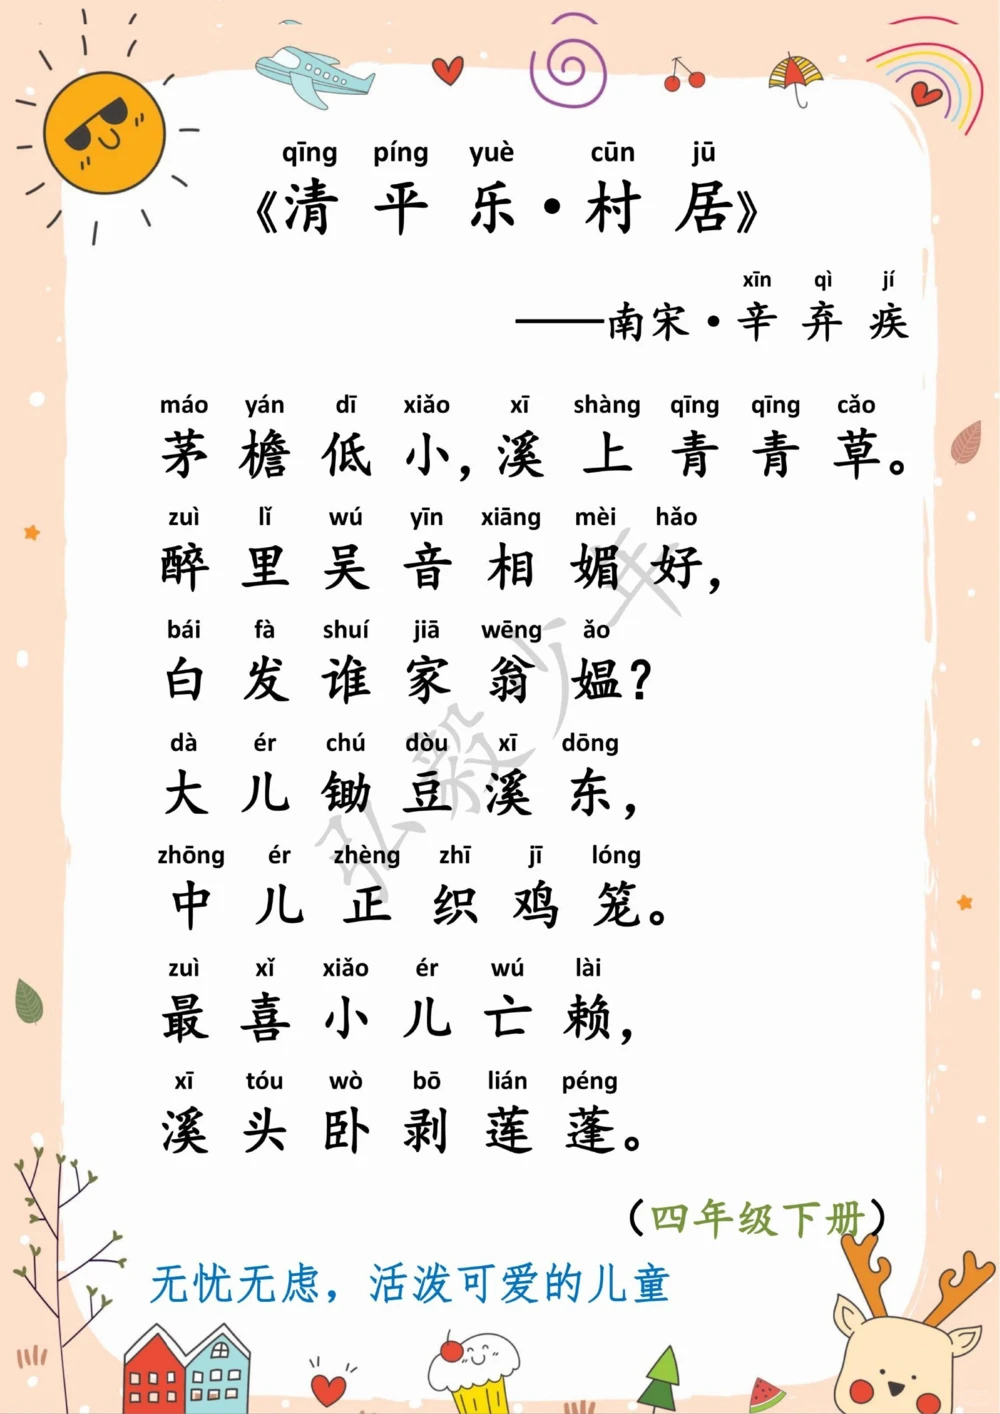 qīng píng yuè cūn jū
《清平乐·村居》
xīn qì jí
——南宋·辛弃疾
máo yán dī xiǎo xī shàng qīng qīng cǎo
茅檐低小，溪上青青草。
zuì lǐ wú yīn xiāng mèi hǎo
醉里吴音相媚好，
bái fà shuí jiā wēng ǎo
白发谁家翁媪？
dà ér chú dòu xī dōng
大儿锄豆溪东，
zhōng ér zhèng zhī jī lóng
中儿正织鸡笼。
zuì xǐ xiǎo ér wú lài
最喜小儿亡赖，
xī tóu wò bō lián péng
溪头卧剥莲蓬。
（四年级下册）
无忧无虑，活泼可爱的儿童
弘毅少年